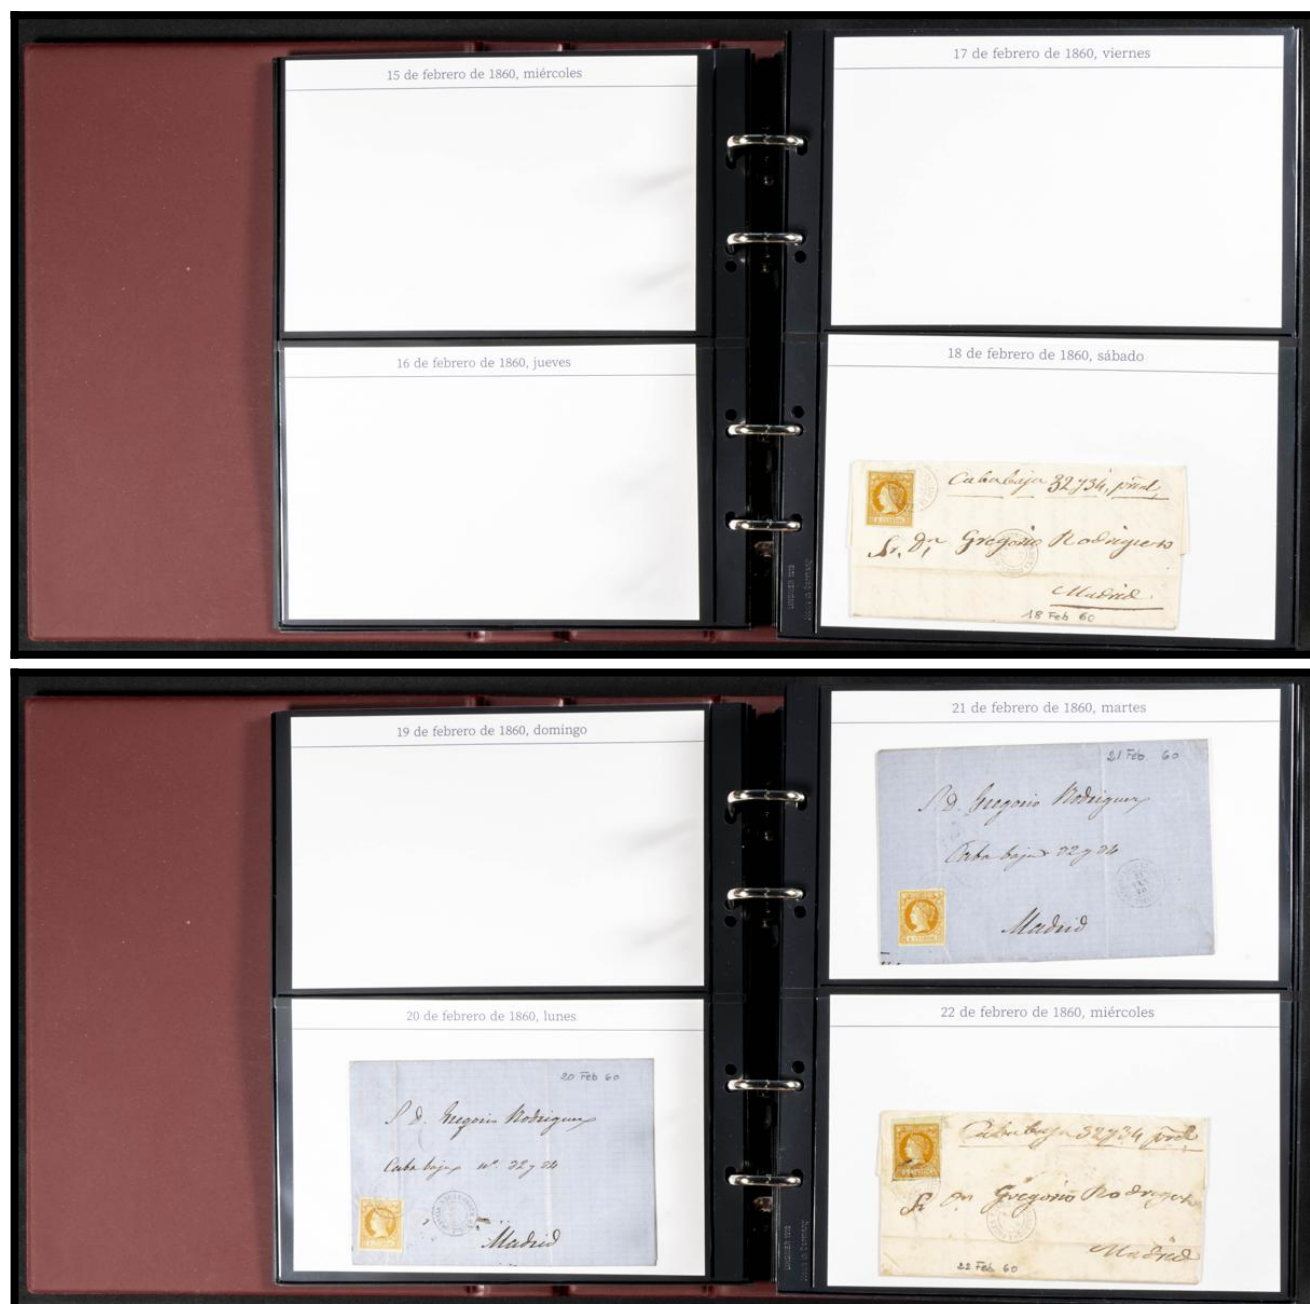 15 de febrero de 1860, miércoles
16 de febrero de 1860, jueves
17 de febrero de 1860, viernes
18 de febrero de 1860, sábado
Cababaja 32 y 34, pral,
Sr. Dn Gregorio Rodriguez
Madrid
18 Feb 60
19 de febrero de 1860, domingo
20 de febrero de 1860, lunes
20 Feb 60
S. D. Gregorio Rodriguez
Caba baja nº. 32 y 34
Madrid
21 de febrero de 1860, martes
21 Feb 60
S. D. Gregorio Rodriguez
Caba baja 32 y 34
Madrid
22 de febrero de 1860, miércoles
Cababaja 32 y 34 pral
Sr Dn Gregorio Rodriguez
Madrid
22 Feb 60